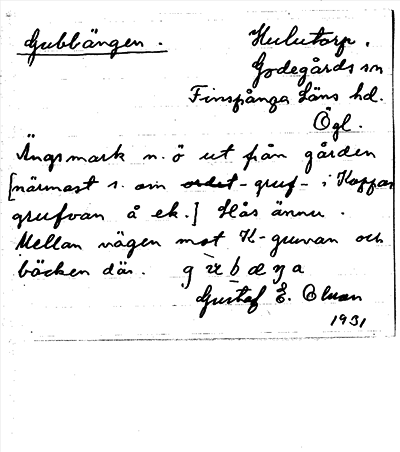 Gubbängen. Hulutorp.
Godegårds sn
Finspånga Läns hd.
Ögl.
Ängsmark n. ö ut från gården
[närmast s. om ordet -gruf- i Koppar
grufvan å ek.] Hås ännu.
Mellan vägen mot K-gruvan och
bäcken där.
Gustaf E. Olsson
1931